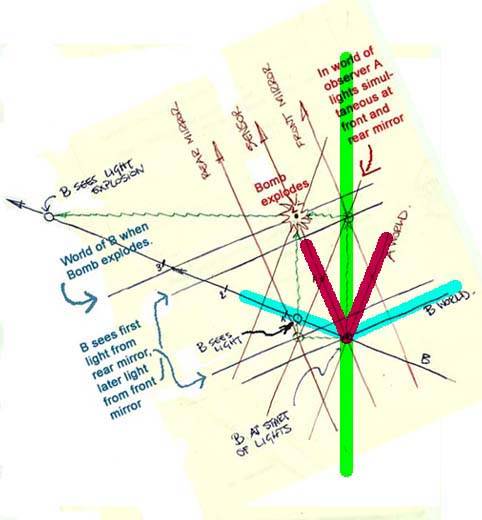 In world of
observer A
lights simul-
taneous at
front and
rear mirror
REAR MIRROR.
SENSOR.
FRONT MIRROR.
B SEES LIGHT
EXPLOSION
Bomb
explodes
World of B when
Bomb explodes.
A WORLD.
3'
2'
B WORLD.
B SEES
LIGHT
B sees first
light from
rear mirror,
later light
from front
mirror
B
B AT START
OF LIGHTS